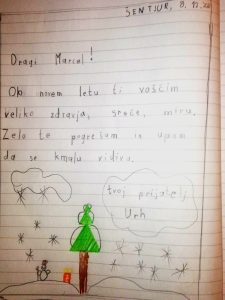 ŠENTJUR, 8. 12. 20
Dragi Marcel!
Ob novem letu ti voščim
veliko zdravja, sreče, miru.
Zelo te pogrešam in upam
da se kmalu vidiva.
tvoj prijatelj
Urh